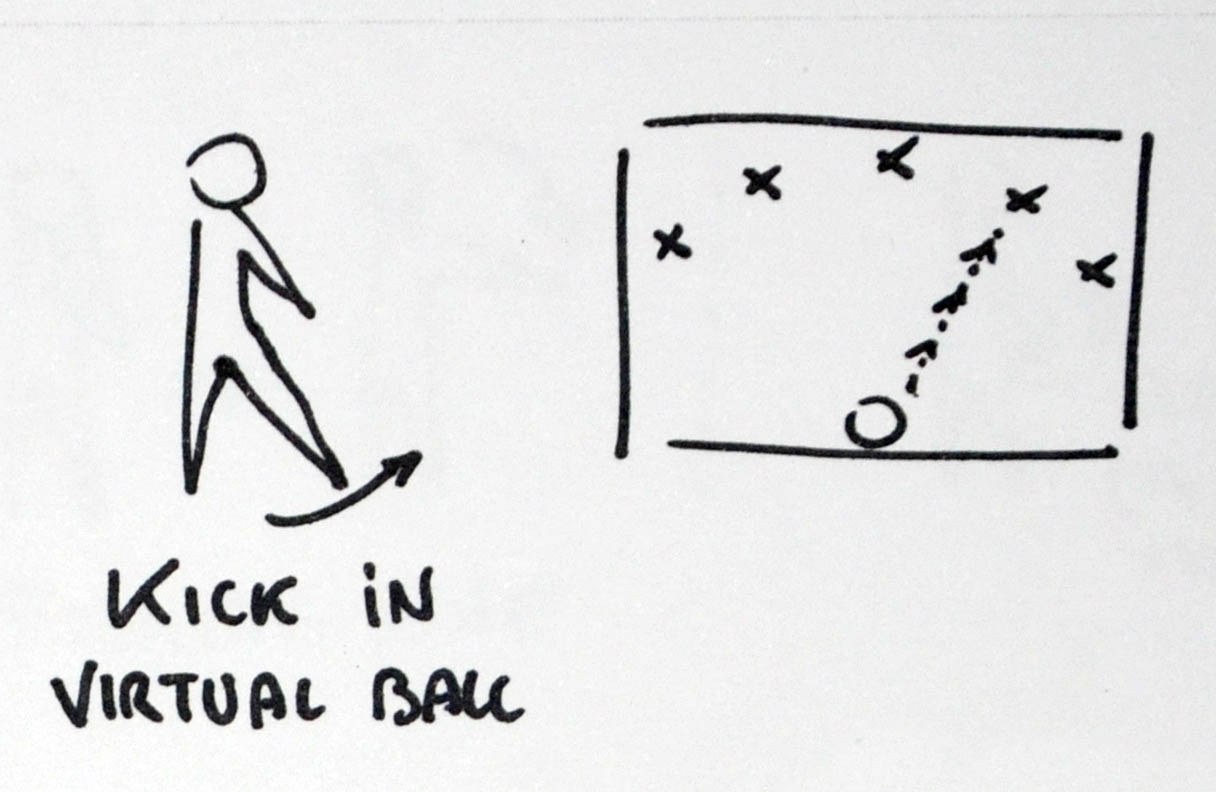 KICK iN
VIRTUAL BALL